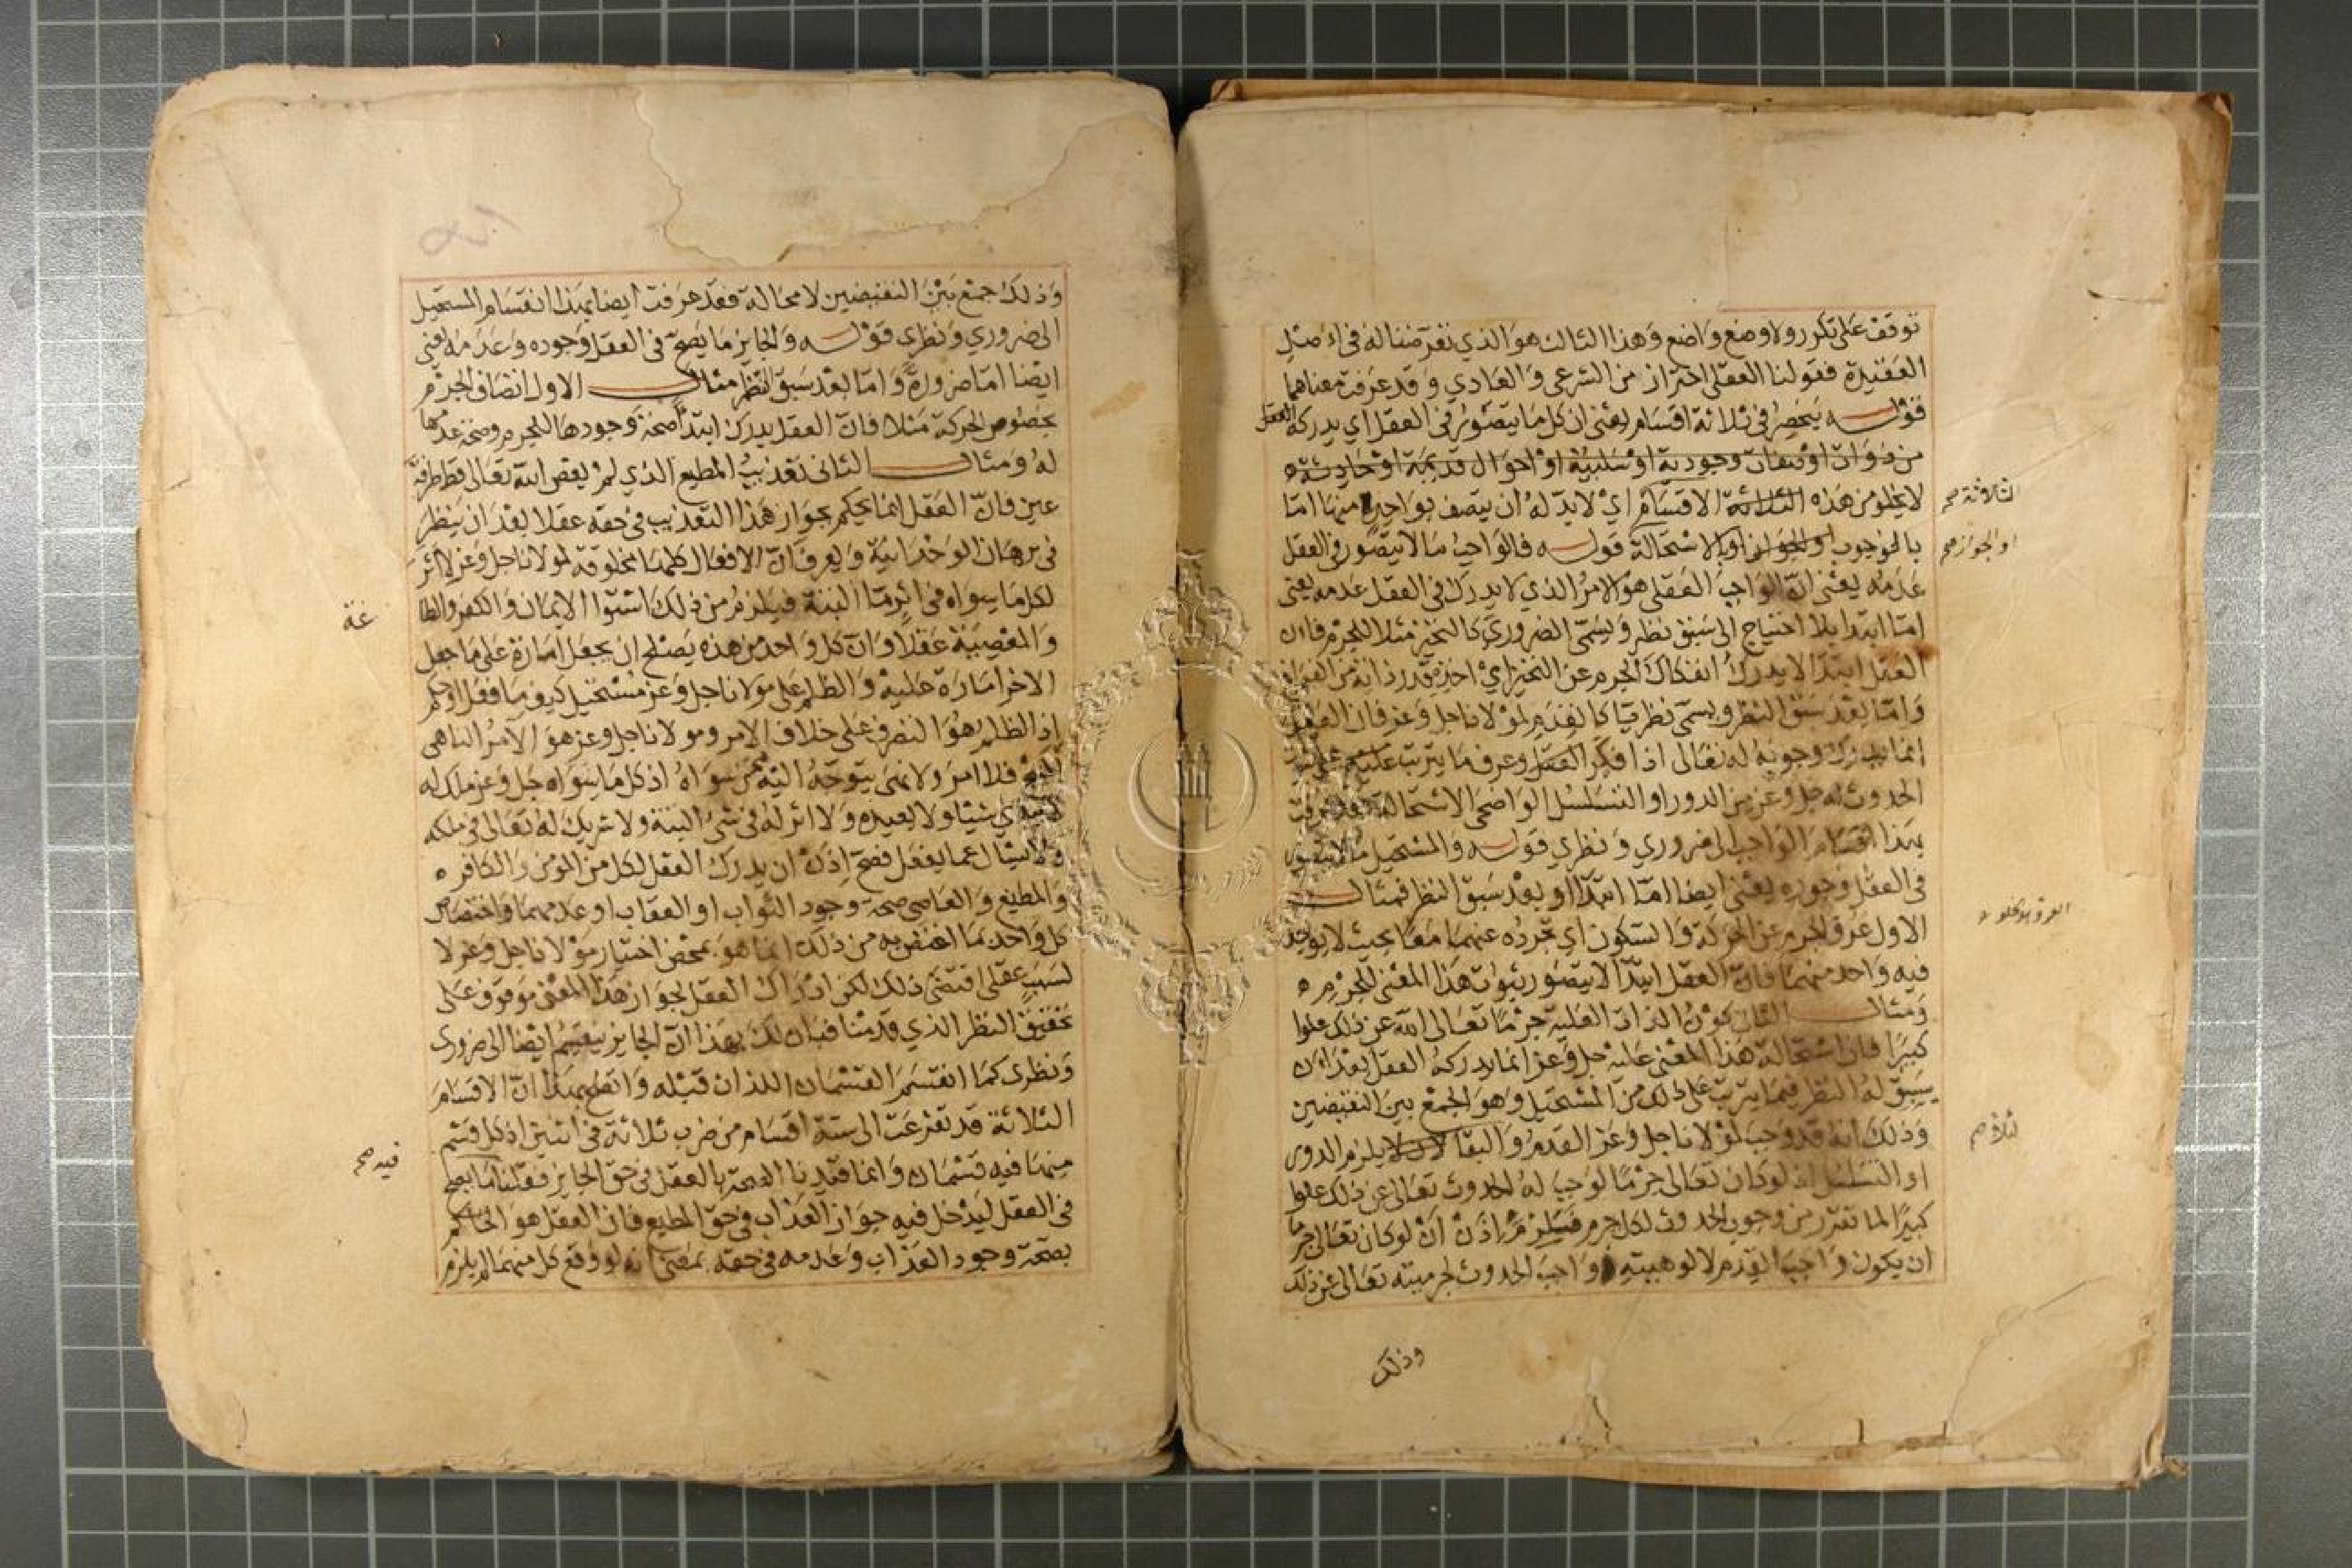 توقف على تكرر ولا وضع واضع وهذا الثالث هو الذي تعرضنا له في اصل
العقيدة فقولنا العقلي احتراز من الشرعي والعادي وقد عرفت معناهما
قوله ينحصر في ثلاثة اقسام يعني ان كل ما يتصور في العقل اي يدركه العقل
من ذوات او صفات وجودية او سلبية او احوال قديمة او حادثة
لا يخلو من هذه الثلاثة الاقسام اي لا بد له ان يتصف بواحد منها اما
الثلاثة صح
بالوجوب او الجواز او بالاستحالة قوله فالواجب ما لا يتصور في العقل
او الجواز صح
عدمه يعني ان الواجب العقلي هو الامر الذي لا يدرك في العقل عدمه يعني
اما ابتدا بلا احتياج الى سبق نظر ويسمى الضروري كالتحيز مثلا للجرم فان
العقل ابتدا لا يدرك انفكاك الجرم عن التحيز اي اخذه قدر ذاته من الفراغ
واما بعد سبق النظر ويسمى نظريا كالقدم لمولانا جل وعز فان العقل
انما يدرك وجوبه له تعالى اذا فكر العقل وعرف ما يترتب على
الحدوث له جل وعز من الدور او التسلسل الواضحي الاستحالة فقد عرفت
بهذا انقسام الواجب الى ضروري ونظري قوله والمستحيل ما لا يتصور
في العقل وجوده يعني ايضا اما ابتدا او بعد سبق النظر فمثال
الاول عرو الجرم عن الحركة والسكون اي تجرده عنهما معا بحيث لا يوجد
فيه واحد منهما فان العقل ابتدا لا يتصور ثبوت هذا المعنى للجرم
ومثال الثاني كون الذات العلية جرما تعالى الله عن ذلك علوا
كبيرا فان استحالة هذا المعنى عليه جل وعز انما يدركه العقل بعد ان
يسبق له النظر فيما يترتب على ذلك من المستحيل وهو الجمع بين النقيضين
وذلك انه قد وجب لمولانا جل وعز القدم والبقا لان لا يلزم الدور
او التسلسل اذ لو كان تعالى جرما لوجب له الحدوث تعالى عن ذلك علوا
كبيرا لما تقرر من وجوب الحدوث لكل جرم فيلزم اذن ان لو كان تعالى جرما
ان يكون واجب القدم لالوهيته واجب الحدوث لجرميته تعالى عن ذلك
وذلك
وذلك جمع بين النقيضين لا محالة فقد عرفت ايضا بهذا انقسام المستحيل
الى ضروري ونظري قوله والجايز ما يصح في العقل وجوده وعدمه يعني
ايضا اما ضرورة واما بعد سبق النظر مثال الاول اتصاف الجرم
بخصوص الحركة مثلا فان العقل يدرك ابتدا صحة وجودها للجرم وصحة عدمها
له ومثال الثاني تعذيب المطيع الذي لم يعص الله تعالى قط طرفة
عين فان العقل انما يحكم بجواز هذا التعذيب في حقه عقلا بعد ان ينظر
في برهان الوحدانية ويعرف ان الافعال كلها مخلوقة لمولانا جل وعز لا اثر
لكل ما سواه في اثر ما البتة فيلزم من ذلك استوا الايمان والكفر والطا
عة
والمعصية عقلا وان كل واحد من هذه يصلح ان يجعل امارة على ما جعل
الاخر امارة عليه والظلم على مولانا جل وعز مستحيل كيف ما فعل او حكم
اذ الظلم هو التصرف على خلاف الامر ومولانا جل وعز هو الآمر الناهي
فلا امر ولا نهي يتوجه اليه ممن سواه اذ كل ما سواه جل وعز ملك له
لا يبدي شيئا ولا يعيده ولا اثر له في شئ البتة ولا شريك له تعالى في ملكه
ولا يسال عما يفعل فصح اذن ان يدرك العقل لكل من المومن والكافر
والمطيع والعاصي صحة وجود الثواب او العقاب او عدمهما واختصاص
كل واحد بما اختص به من ذلك انما هو بمحض اختيار مولانا جل وعز لا
لسبب عقلي اقتضى ذلك لكن ادراك العقل لجواز هذا المعنى موقوف على
تحقيق النظر الذي قدمنا فبان لك بهذا ان الجايز ينقسم ايضا الى ضروري
ونظري كما انقسم القسمان اللذان قبله واتضح بهذا ان الاقسام
الثلاثة قد تفرعت الى ستة اقسام من ضرب ثلاثة في اثنين اذ كل قسم
منها فيه قسمان وانما قيدنا الصحة بالعقل في حق الجايز فقلنا ما يصح
فيه صح
في العقل ليدخل فيه جواز العذاب في حق المطيع فان العقل هو الحاكم
بصحة وجود العذاب وعدمه في حقه بمعنى انه لو وقع كل منهما لم يلزم